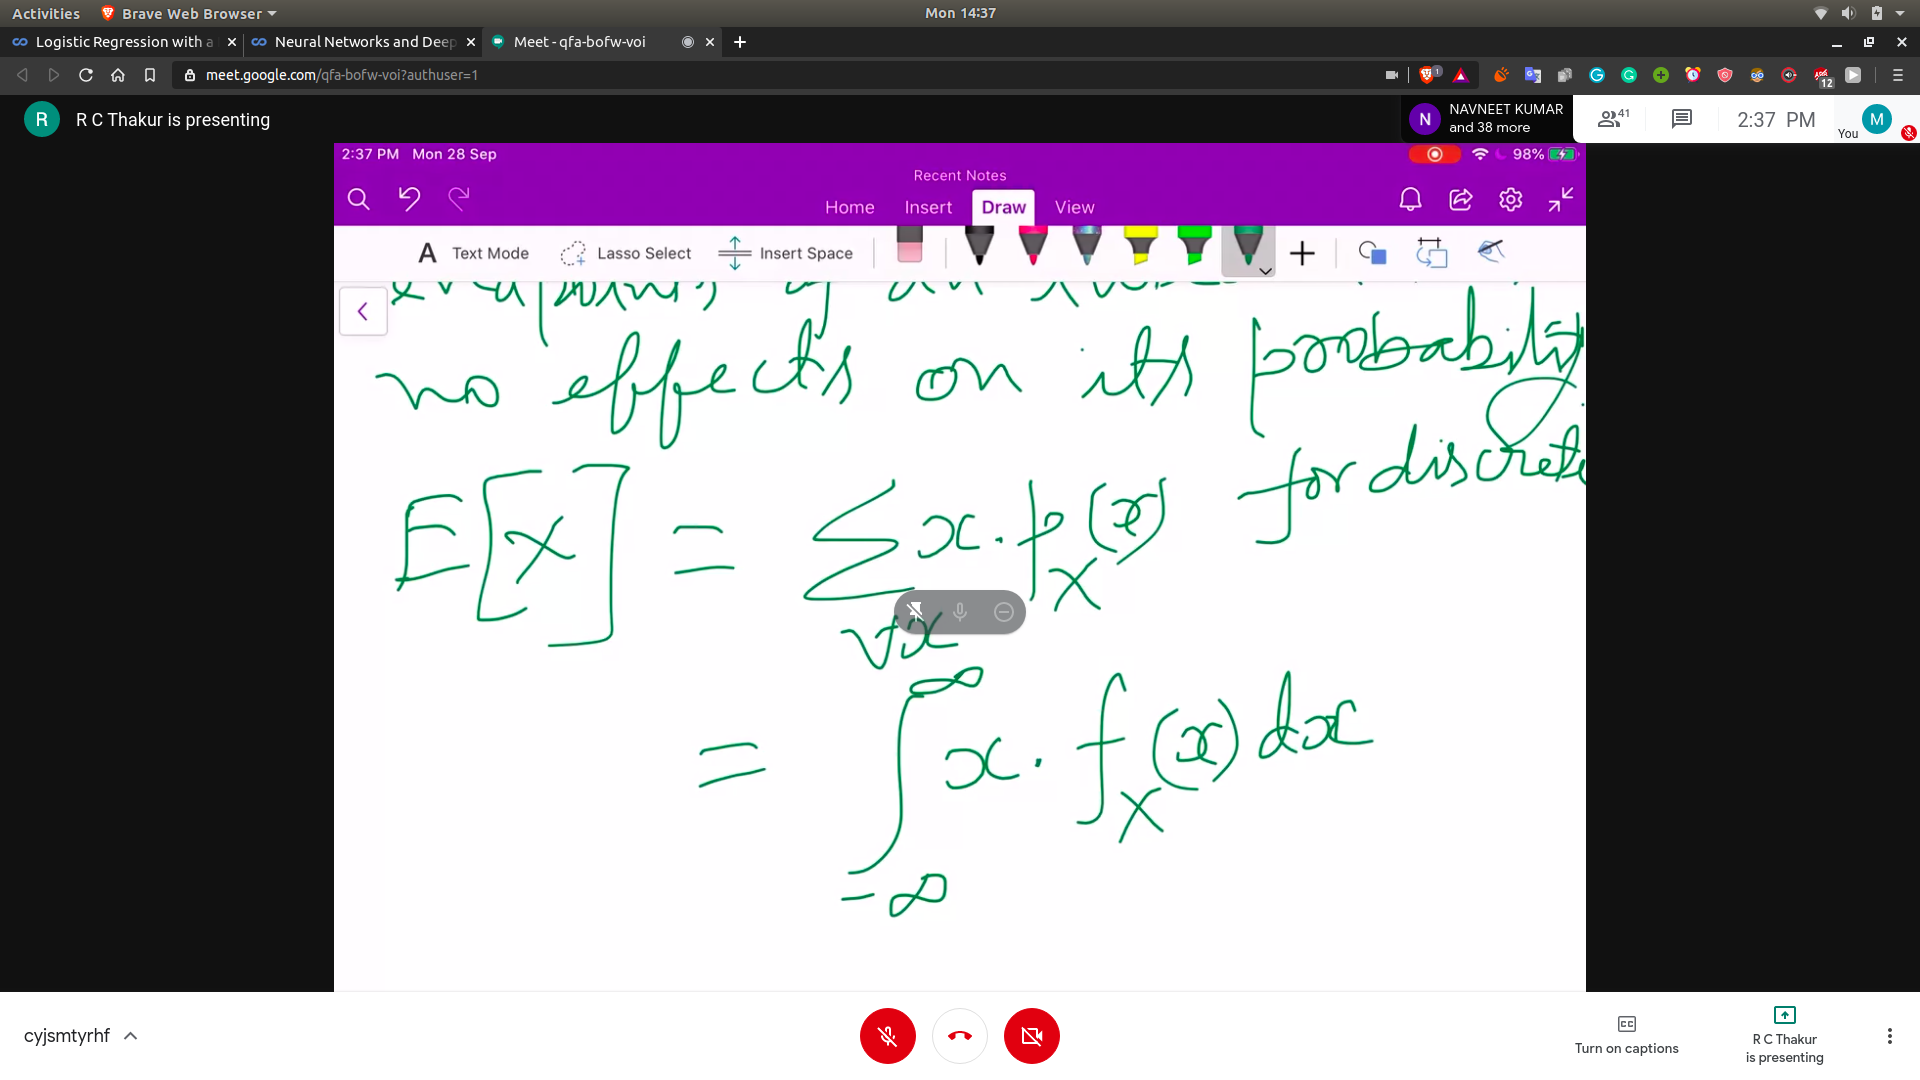 Activities Brave Web Browser Mon 14:37
Logistic Regression with a Neural Networks and Deep Meet - qfa-bofw-voi
meet.google.com/qfa-bofw-voi?authuser=1 1 12
R R C Thakur is presenting
N NAVNEET KUMAR
and 38 more
41 2:37 PM You M
2:37 PM Mon 28 Sep 98%
Recent Notes
Home Insert Draw View
A Text Mode Lasso Select Insert Space
endpoints of an
no effects on its probability
for discrete
E[X] = ∑ x . p_X(x)
∀x
= ∫_{-∞}^{∞} x . f_X(x) dx
cyjsmtyrhf
CC
Turn on captions
R C Thakur
is presenting